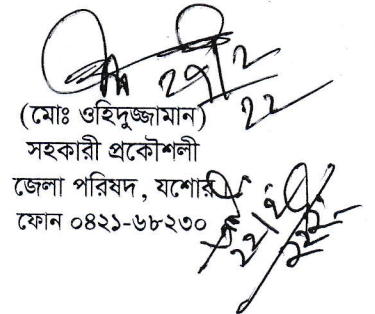 (মোঃ ওহিদুজ্জামান)
সহকারী প্রকৌশলী
জেলা পরিষদ, যশোর
ফোন ০৪২১-৬৮২৩০